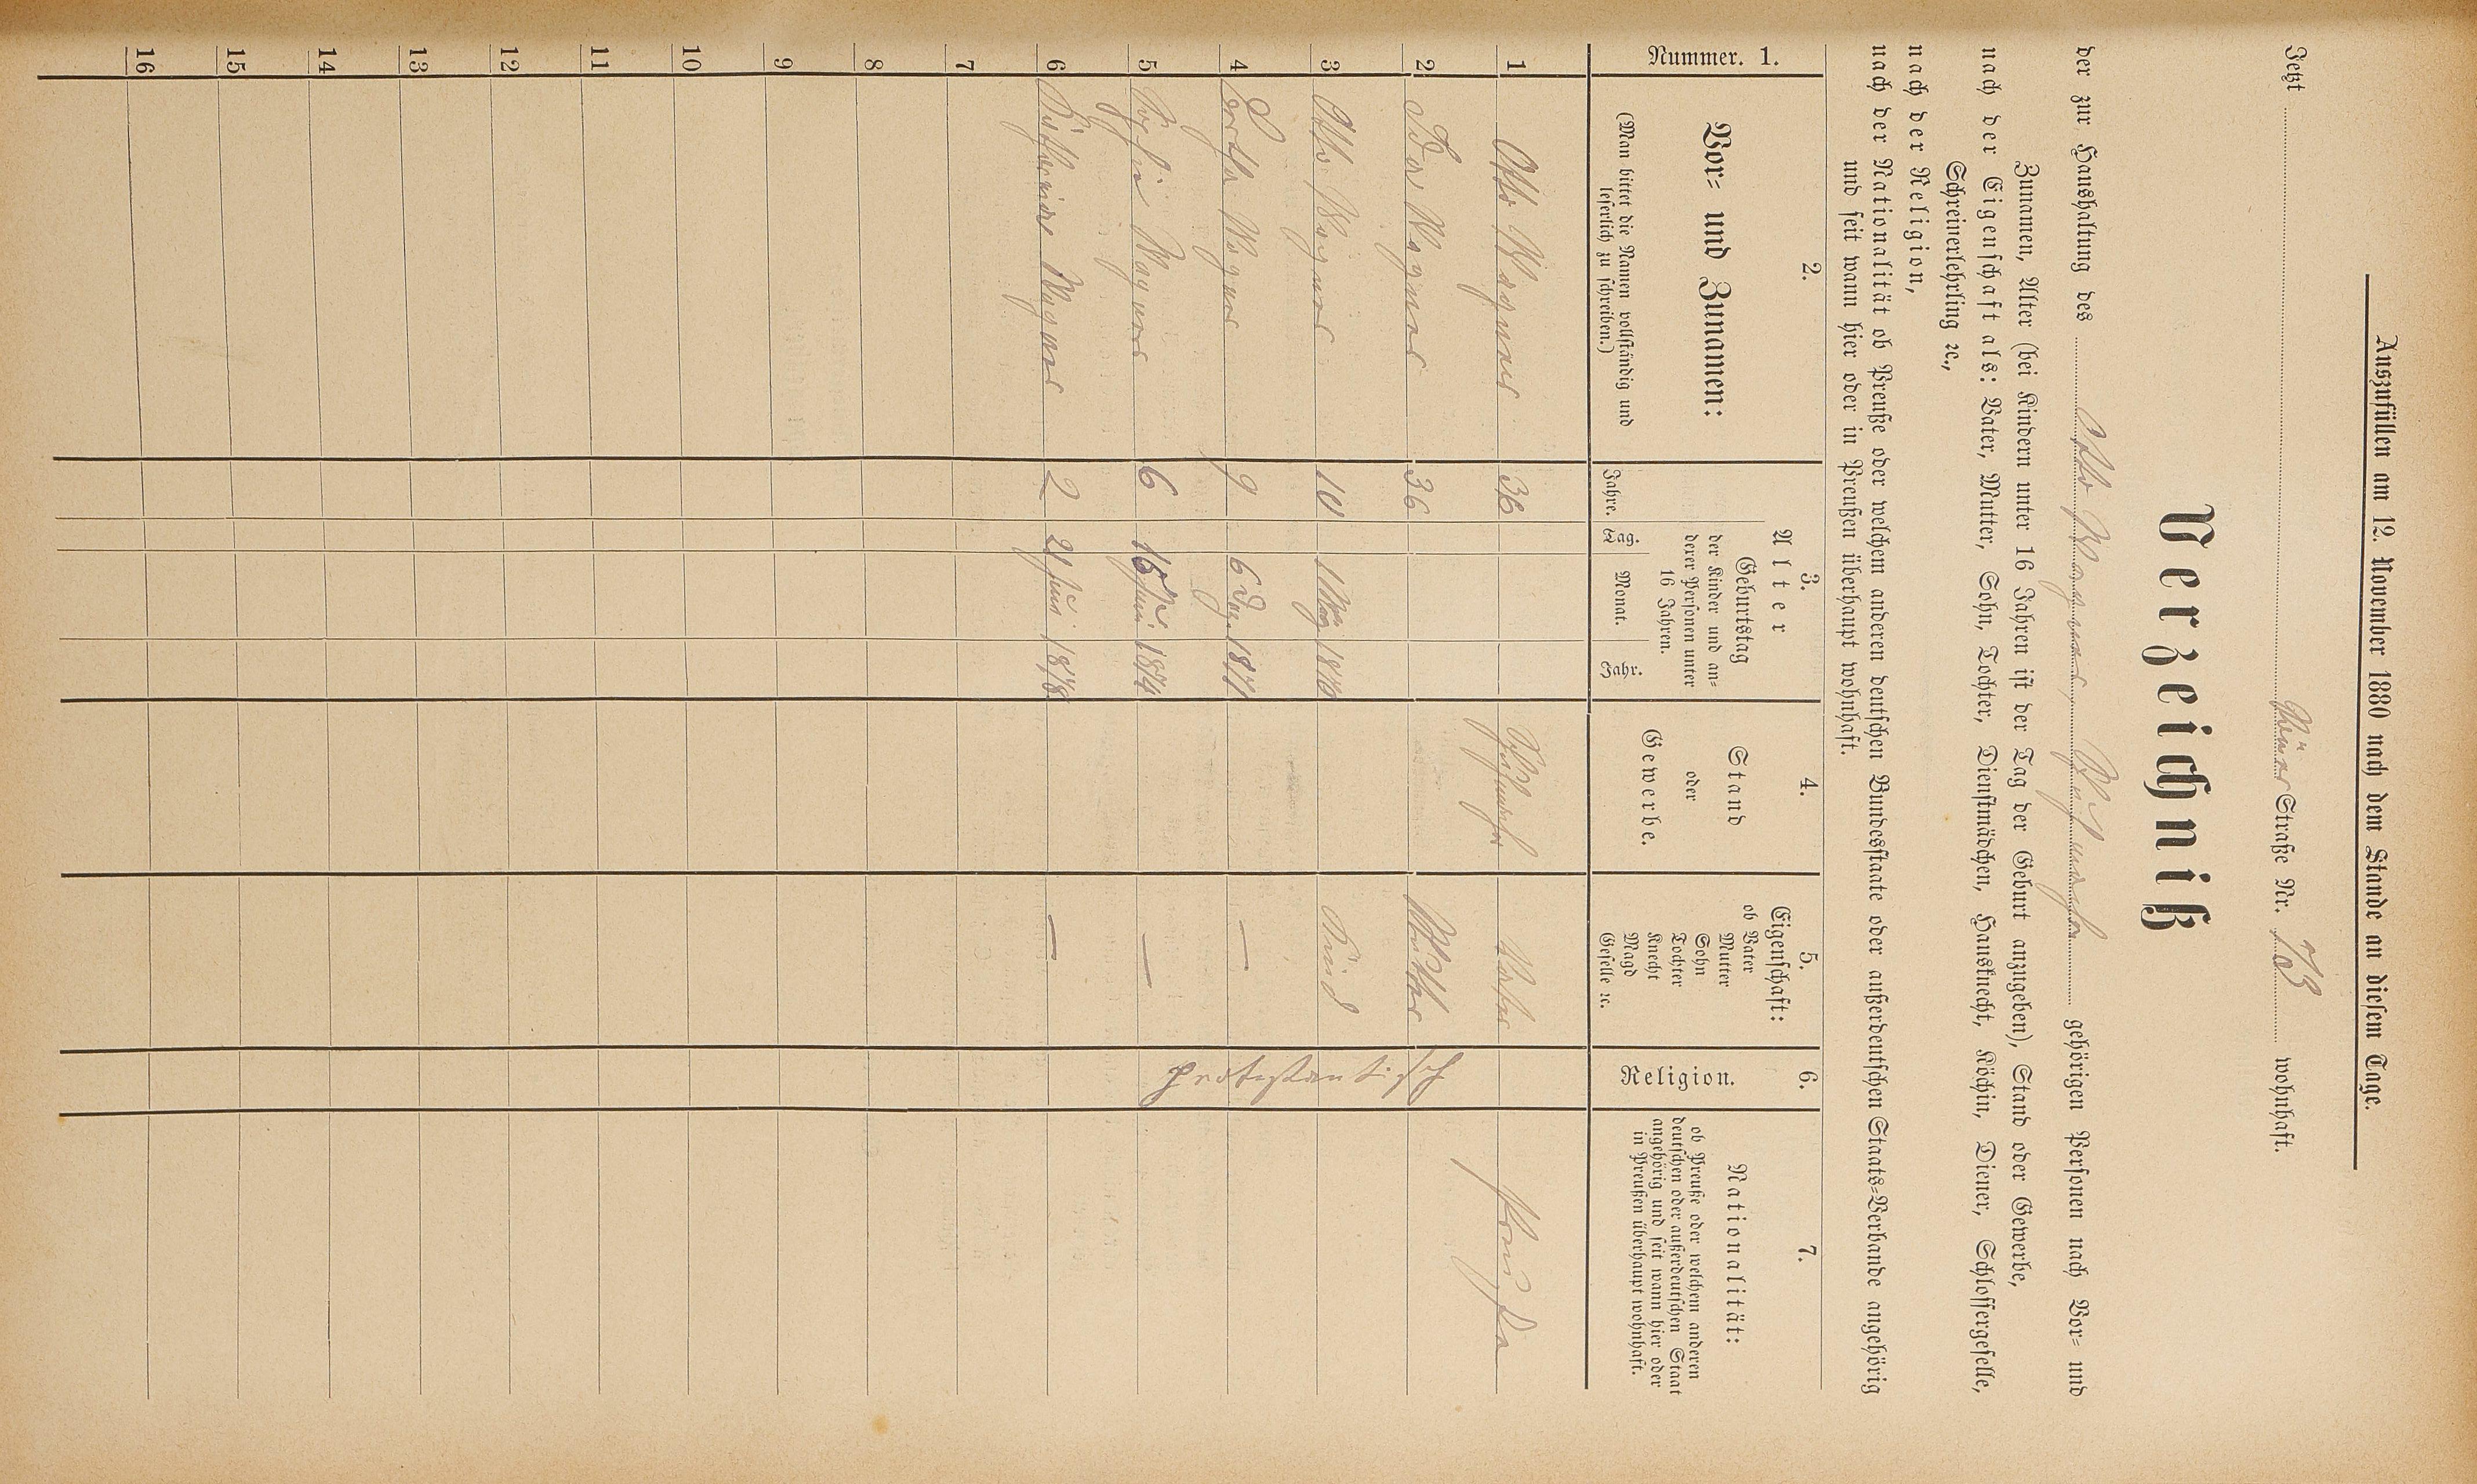 Auszufüllen am 12. November 1880 nach dem Stande an diesem Tage.
Jetzt Straße Nr. 73 wohnhaft.
Verzeichniß
der zur Haushaltung des Otto Wagner, gehörigen Personen nach Vor- und
Zunamen, Alter (bei Kindern unter 16 Jahren ist der Tag der Geburt anzugeben), Stand oder Gewerbe,
nach der Eigenschaft als: Vater, Mutter, Sohn, Tochter, Dienstmädchen, Hausknecht, Köchin, Diener, Schlossergeselle,
Schreinerlehrling ꝛc.,
nach der Religion,
nach der Nationalität ob Preuße oder welchem anderen deutschen Bundesstaate oder außerdeutschen Staats-Verbande angehörig
und seit wann hier oder in Preußen überhaupt wohnhaft.
Nummer. 1.
2.
Vor- und Zunamen:
(Man bittet die Namen vollständig und
leserlich zu schreiben.)
3.
Alter
Jahre.
Geburtstag
der Kinder und an-
derer Personen unter
16 Jahren.
Tag. Monat. Jahr.
4.
Stand
oder
Gewerbe.
5.
Eigenschaft:
ob Vater
Mutter
Sohn
Tochter
Knecht
Magd
Geselle ꝛc.
6.
Religion.
7.
Nationalität:
ob Preuße oder welchem anderen
deutschen oder außerdeutschen Staat
angehörig und seit wann hier oder
in Preußen überhaupt wohnhaft.
1 Otto Wagner 36 Vater
2 Ida Wagner 36 Mutter
3 Otto Wagner 10 1 May 1870 Kind
4 Bertha Wagner 9 6 Dez. 1871 —
5 Sophie Wagner 6 15 Juni 1874 —
6 Wagner 2 21 Juni 1878 —
protestantisch
7
8
9
10
11
12
13
14
15
16